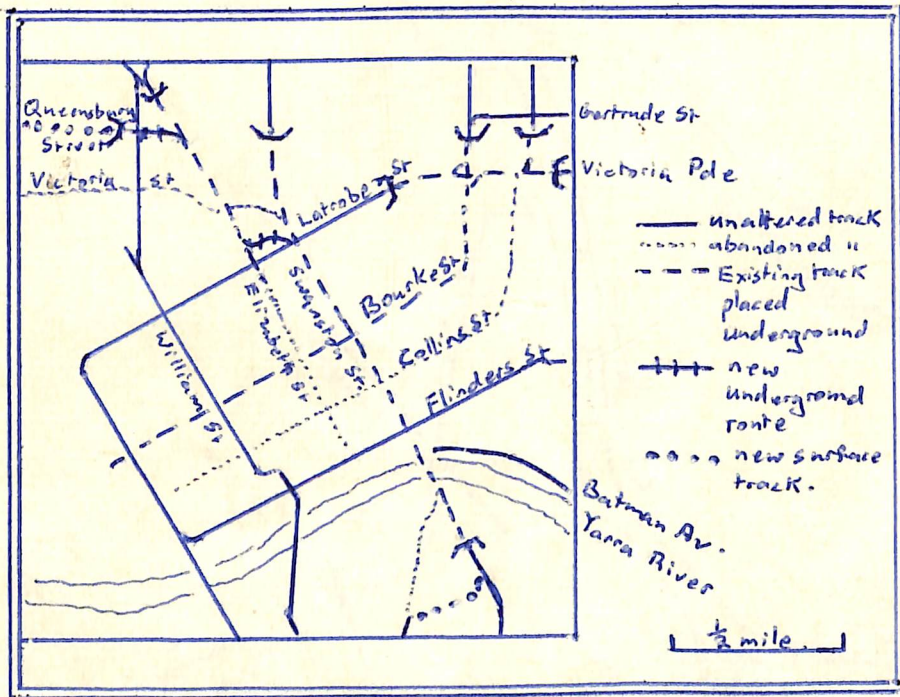 Queensbury
Street
Victoria St
Gertrude St
Victoria Pde
Latrobe St
Swanston St
Elizabeth St
Bourke St
Collins St.
Flinders St
William St
Batman Av.
Yarra River
unaltered track
abandoned "
Existing track
placed
underground
new
underground
route
new surface
track.
½ mile.